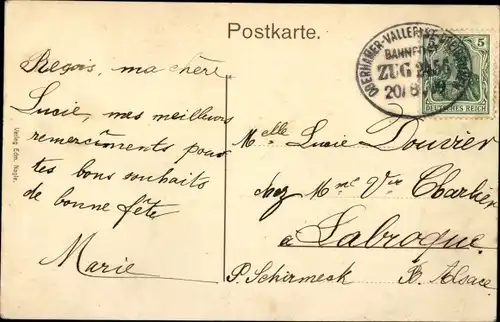 Postkarte.
BAHNPOST
ZUG
20/8
5
DEUTSCHES REICH
Verlag Edm. Nagle.
Reçois, ma chère
Lucie, mes meilleurs
remercîments pour
tes bons souhaits
de bonne fête
Marie
Melle Lucie Douvier
chez Mme Vve Charlier
à Labroque
P. Schirmeck B. Alsace